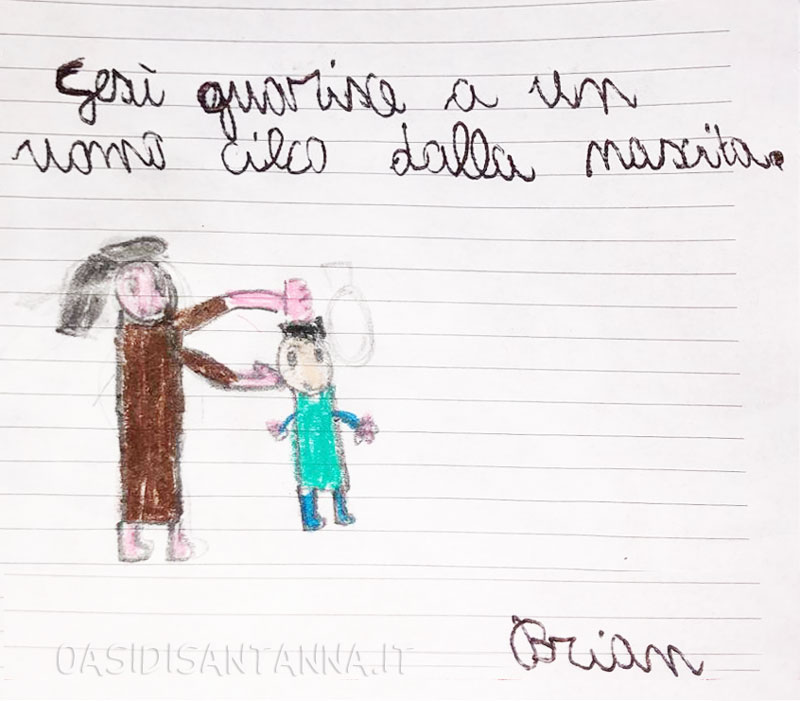 Gesù guarisce a un
uomo cieco dalla nascita.
Brian
OASIDISANTANNA.IT